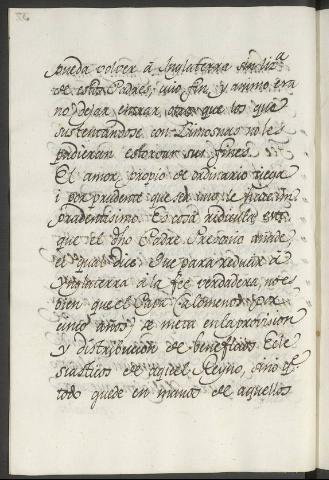 pueda volver à Inglaterra sin liz.ª
de estos Padres, cuio fin, y animo era
no dejar entrar otros que los que
sustentandose con Limosnas no le
pudieran estorvar sus fines.
El amor propio de ordinario ciega
i por prudente que sea uno le hace im
prudentissimo. Es cosa ridicula
que el dho Padre Presonio añade,
el qual dice. Que para reducir à
Ynglaterra à la feè verdadera, no es
bien que el Papa (alomenos por
cinco años) se meta en la provision
y distribucion de beneficios Ecle
siasticos de aquel Reyno, sino q.e
todo quede en manos de aquellos